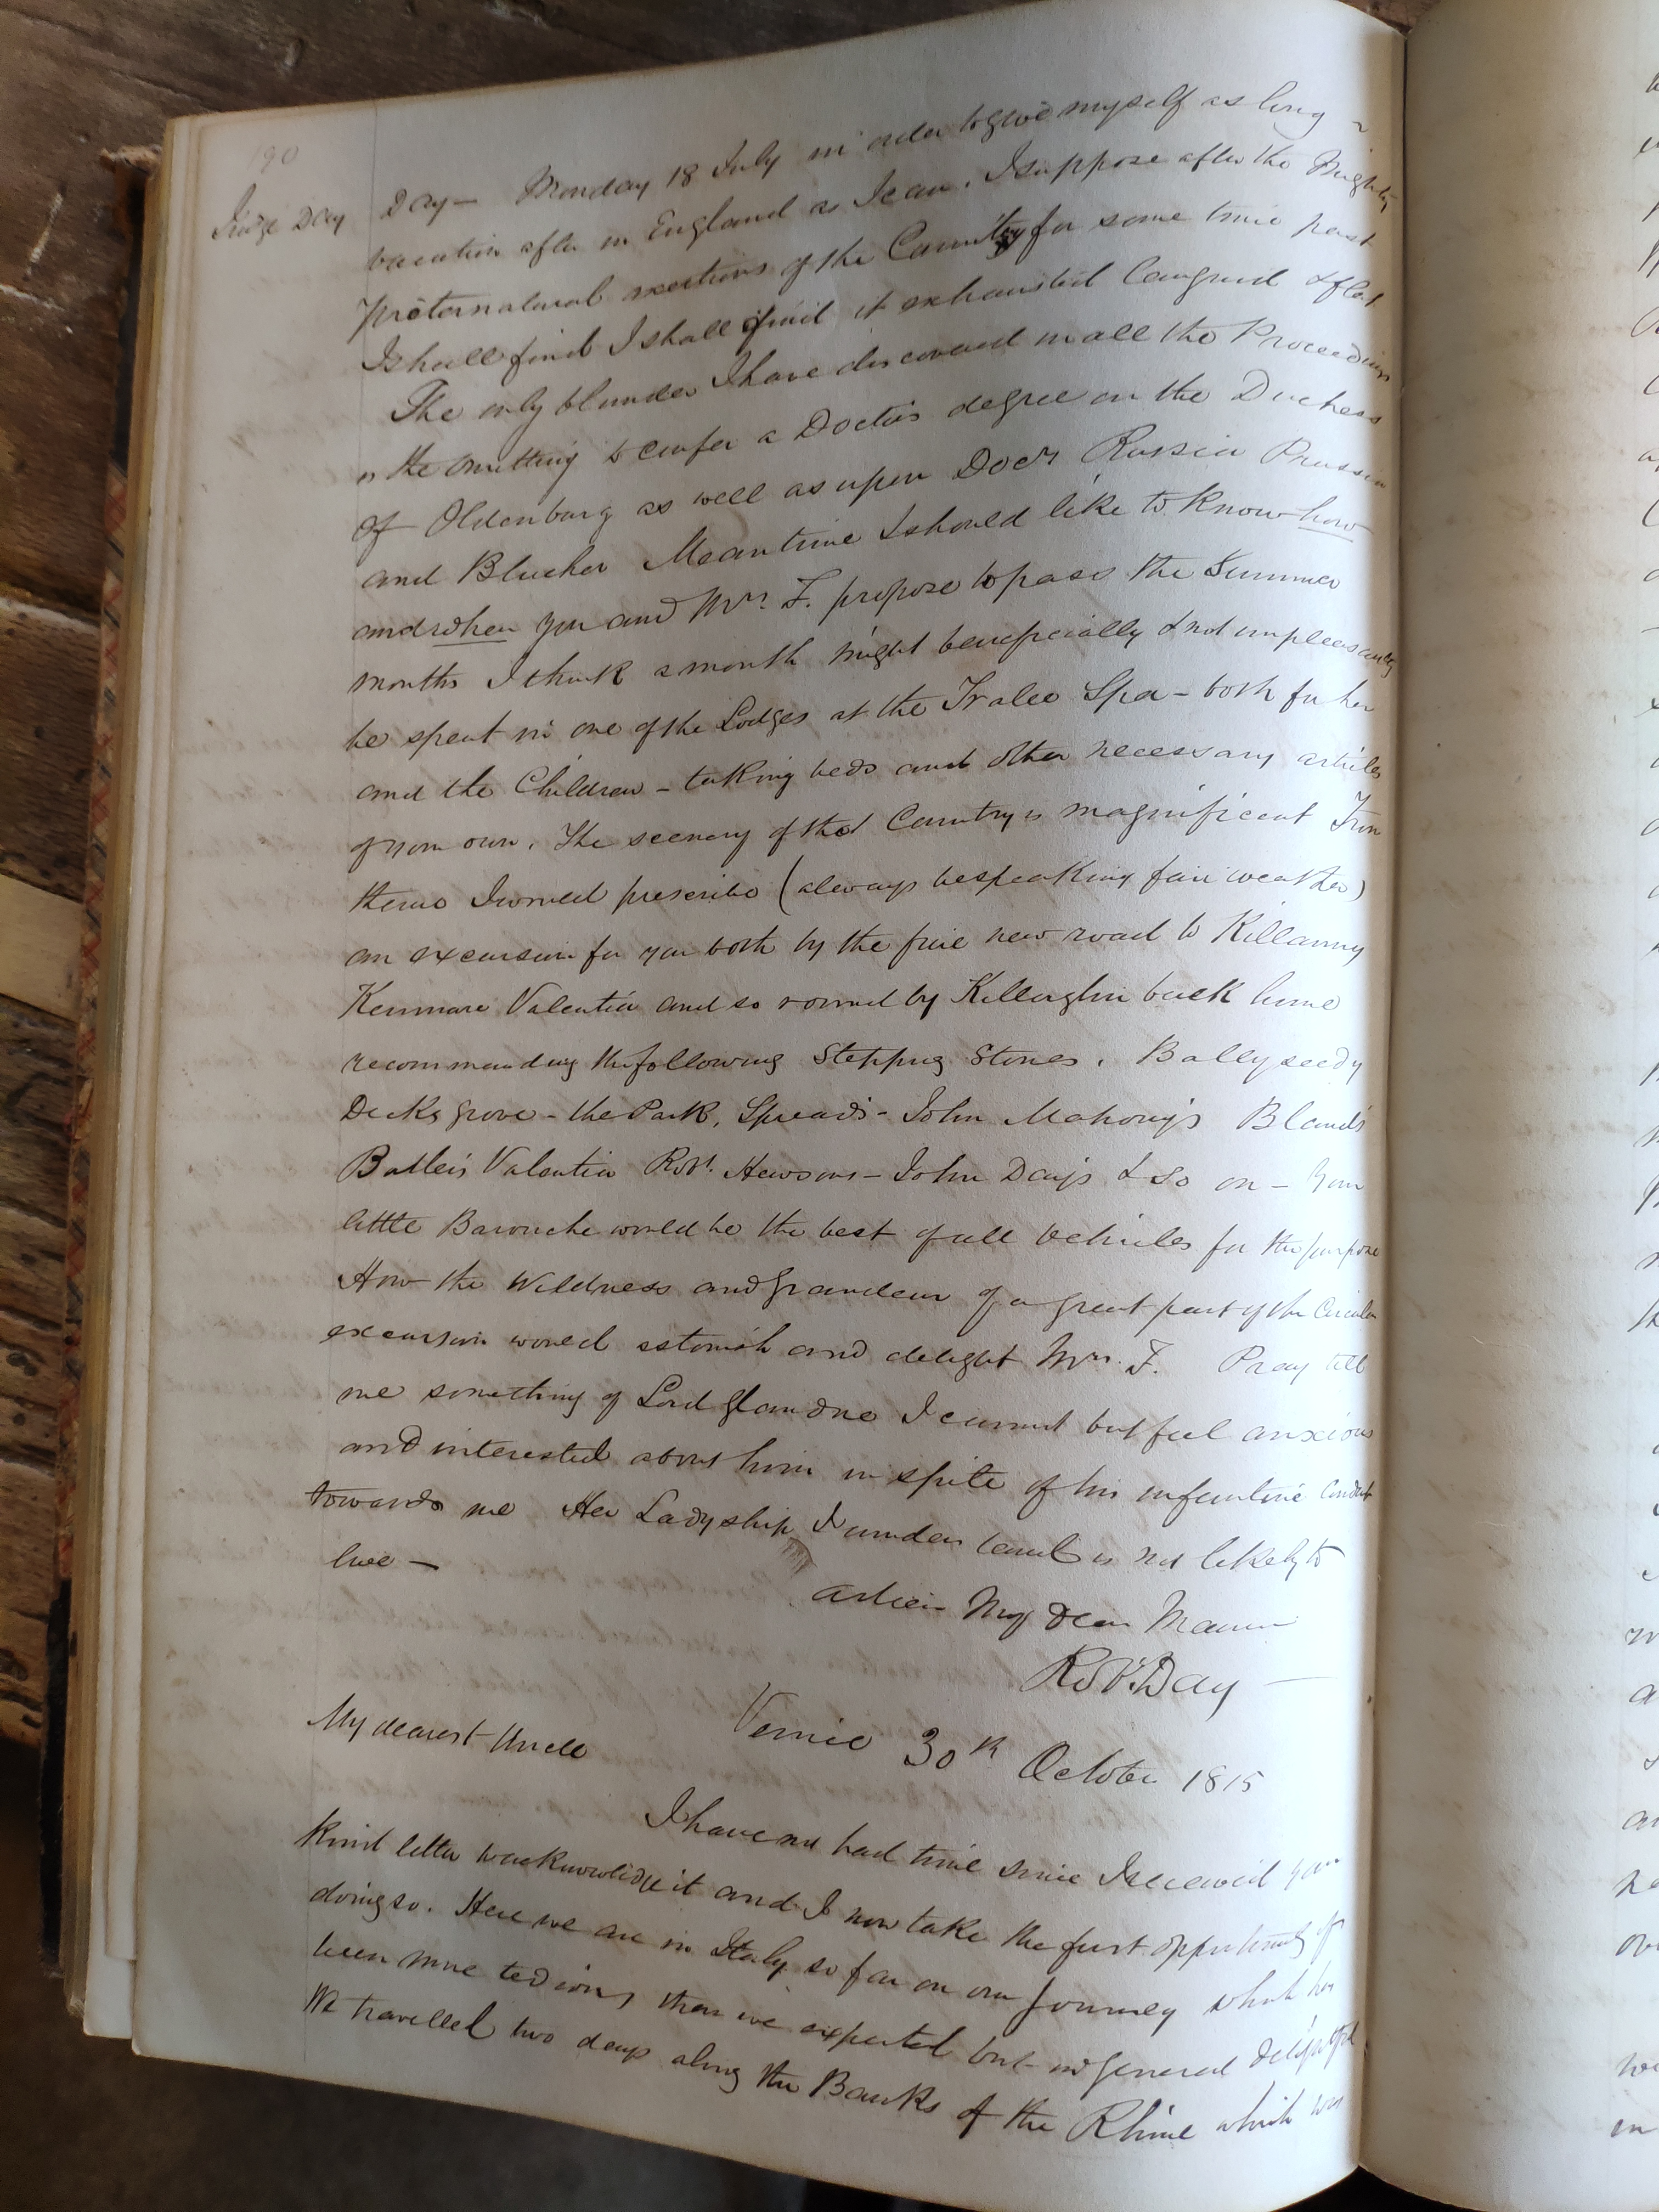 190
Judge Day
Day — Monday 18 July in order to give myself as long
vacation after in England as I can. I suppose after the Mighty
preternatural exertions of the Country for some time past
I shall find I shall find it exhausted languid & flat
The only blunder I have discovered in all the Proceedings
is the omitting to confer a Doctors degree on the Duchess
of Oldenburg as well as upon Docrs Russia Prussia
and Blucher Meantime I should like to know how
and when you and Mrs. F. propose to pass the Summer
months I think a month might beneficially & not unpleasantly
be spent in one of the Lodges at the Tralee Spa - both for her
and the Children - taking beds and other necessary articles
of your own. The scenery of that Country is magnificent From
thence I would prescribe (always bespeaking fair weather)
an excursion for you both by the fine new road to Killarny
Kenmare Valentia and so round by Killorglin back home
recommending the following Stepping Stones. Ballyseedy
Dicksgrove - the Park, Spread's - John Mahony's Bland's
Butler's Valentia Robt. Hewsons - John Day's & so on - Your
little Barouche would be the best of all Vehicles for the purpose
How the Wildness and Grandeur of a great part of the Circular
excursion would astonish and delight Mrs. F. Pray tell
me something of Lord Glandore I cannot but feel anxious
and interested about him in spite of his infantine Conduct
towards me Her Ladyship I understand is not likely to
live —
Adieu My Dear Maurice
Robt. Day —
Venice 30th October 1815
My dearest Uncle
I have not had time since I received your
kind letter to acknowledge it and I now take the first opportunity of
doing so. Here we are in Italy so far on our Journey which has
been more tedious than we expected but in general delightful
We travelled two days along the Banks of the Rhine which was